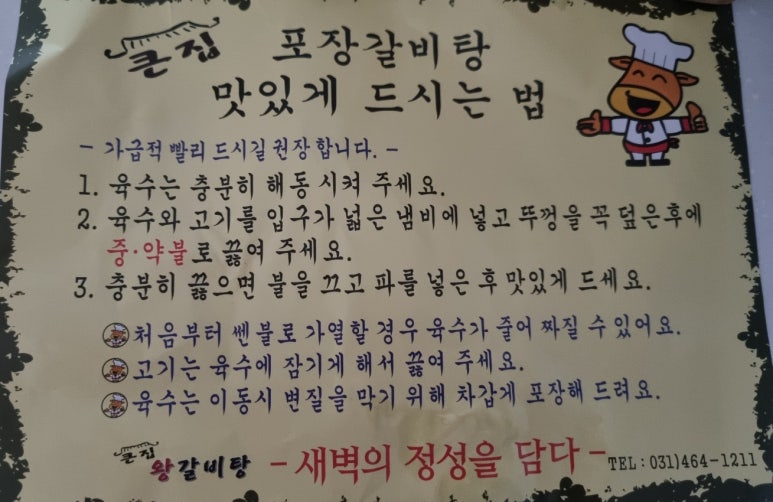 큰집 포장갈비탕
맛있게 드시는 법
- 가급적 빨리 드시길 권장합니다. -
1. 육수는 충분히 해동 시켜 주세요.
2. 육수와 고기를 입구가 넓은 냄비에 넣고 뚜껑을 꼭 덮은후에
중·약불로 끓여 주세요.
3. 충분히 끓으면 불을 끄고 파를 넣은 후 맛있게 드세요.
처음부터 쎈불로 가열할 경우 육수가 줄어 짜질 수 있어요.
고기는 육수에 잠기게 해서 끓여 주세요.
육수는 이동시 변질을 막기 위해 차갑게 포장해 드려요.
큰집 왕갈비탕 - 새벽의 정성을 담다 - TEL : 031)464-1211